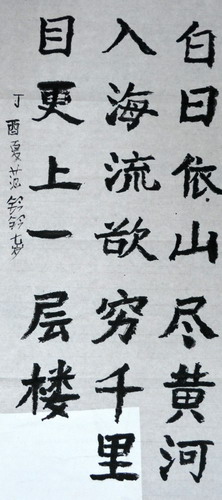 白日依山尽黄河
入海流欲穷千里
目更上一层楼
丁酉夏